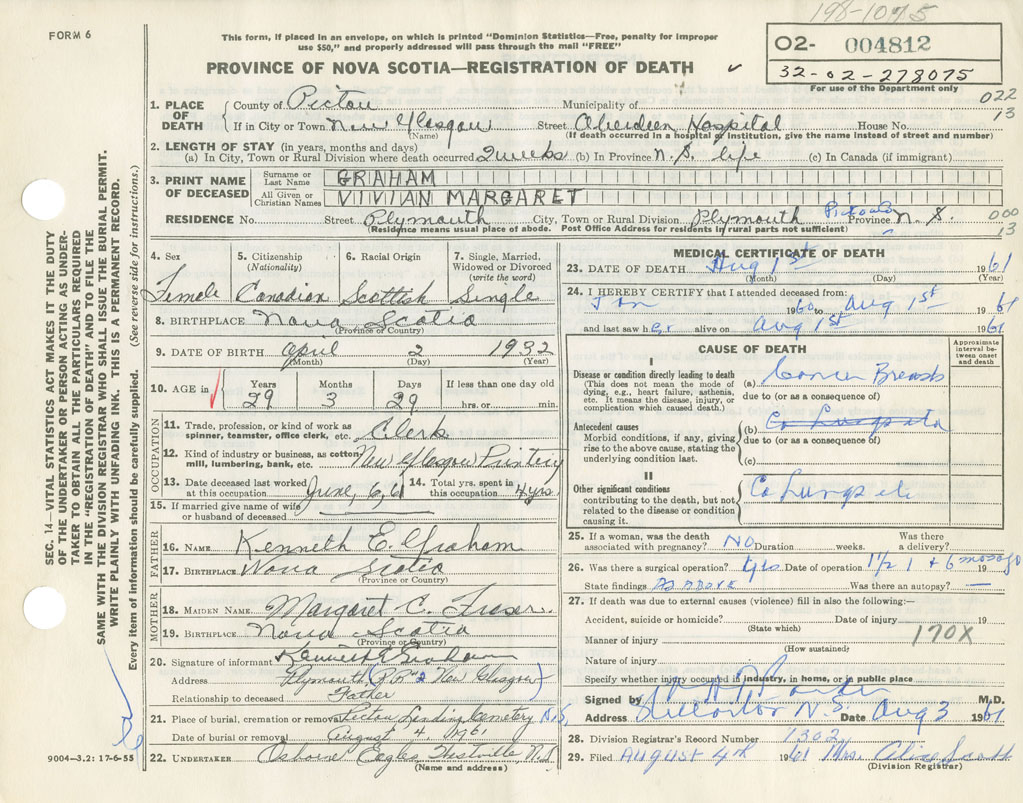 198-1075
FORM 6
This form, if placed in an envelope, on which is printed "Dominion Statistics—Free, penalty for improper
use $50," and properly addressed will pass through the mail "FREE"
02- 004812
32-02-278075
For use of the Department only
PROVINCE OF NOVA SCOTIA—REGISTRATION OF DEATH
022
13
1. PLACE OF DEATH { County of Pictou Municipality of
If in City or Town New Glasgow Street Aberdeen Hospital House No.
(Name) (If death occurred in a hospital or institution, give the name instead of street and number)
2. LENGTH OF STAY (in years, months and days)
(a) In City, Town or Rural Division where death occurred 2 weeks (b) In Province N.S. life (c) In Canada (if immigrant)
3. PRINT NAME OF DECEASED { Surname or Last Name GRAHAM
All Given or Christian Names VIVIAN MARGARET
RESIDENCE No. Street Plymouth City, Town or Rural Division Plymouth Pictou Co Province N.S. 000
13
(Residence means usual place of abode. Post Office Address for residents in rural parts not sufficient)
SEC. 14—VITAL STATISTICS ACT MAKES IT THE DUTY
OF THE UNDERTAKER OR PERSON ACTING AS UNDER-
TAKER TO OBTAIN ALL THE PARTICULARS REQUIRED
IN THE "REGISTRATION OF DEATH" AND TO FILE THE
SAME WITH THE DIVISION REGISTRAR WHO SHALL ISSUE THE BURIAL PERMIT.
WRITE PLAINLY WITH UNFADING INK. THIS IS A PERMANENT RECORD.
Every item of information should be carefully supplied. (See reverse side for instructions.)
4. Sex 5. Citizenship (Nationality) 6. Racial Origin 7. Single, Married, Widowed or Divorced (write the word)
Female Canadian Scottish Single
8. BIRTHPLACE Nova Scotia
(Province or Country)
9. DATE OF BIRTH April 2 1932
(Month) (Day) (Year)
10. AGE in Years Months Days If less than one day old
29 3 29 hrs. or min.
OCCUPATION
11. Trade, profession, or kind of work as
spinner, teamster, office clerk, etc. Clerk
12. Kind of industry or business, as cotton
mill, lumbering, bank, etc. New Glasgow Printing
13. Date deceased last worked
at this occupation June, 6, 61 14. Total yrs. spent in
this occupation 4 yrs.
15. If married give name of wife
or husband of deceased
FATHER
16. NAME Kenneth E. Graham
17. BIRTHPLACE Nova Scotia
(Province or Country)
MOTHER
18. MAIDEN NAME Margaret C. Fraser
19. BIRTHPLACE Nova Scotia
(Province or Country)
20. Signature of informant Kenneth E Graham
Address Plymouth (R R #2 New Glasgow)
Relationship to deceased Father
21. Place of burial, cremation or removal Pictou Landing Cemetery N.S.
Date of burial or removal August 4 1961
22. UNDERTAKER Eagles Westville, N.S.
(Name and address)
9004—3.2: 17-6-55
MEDICAL CERTIFICATE OF DEATH
23. DATE OF DEATH Aug 1st 1961
(Month) (Day) (Year)
24. I HEREBY CERTIFY that I attended deceased from:
Jan 1960 to Aug 1st 1961
and last saw her alive on Aug 1st 1961
CAUSE OF DEATH
Approximate interval between onset and death
I
Disease or condition directly leading to death
(This does not mean the mode of
dying, e.g., heart failure, asthenia,
etc. It means the disease, injury, or
complication which caused death.)
(a) Cancer Breast
due to (or as a consequence of)
Antecedent causes
Morbid conditions, if any, giving
rise to the above cause, stating the
underlying condition last.
(b) Ca Lungs etc
due to (or as a consequence of)
(c)
II
Other significant conditions
contributing to the death, but not
related to the disease or condition
causing it.
Ca Lungs etc
25. If a woman, was the death
associated with pregnancy? NO Duration weeks. Was there
a delivery?
26. Was there a surgical operation? Yes. Date of operation 1 1/2 & 6 mos ago 19
State findings AS ABOVE Was there an autopsy? —
27. If death was due to external causes (violence) fill in also the following:—
Accident, suicide or homicide? Date of injury 19
(State which)
Manner of injury 170X
(How sustained)
Nature of injury
Specify whether injury occurred in industry, in home, or in public place
Signed by M.D.
Address N.S. Date Aug 3 1961
28. Division Registrar's Record Number 1302
29. Filed AUGUST 4th 1961 Mrs. Scott
(Division Registrar)